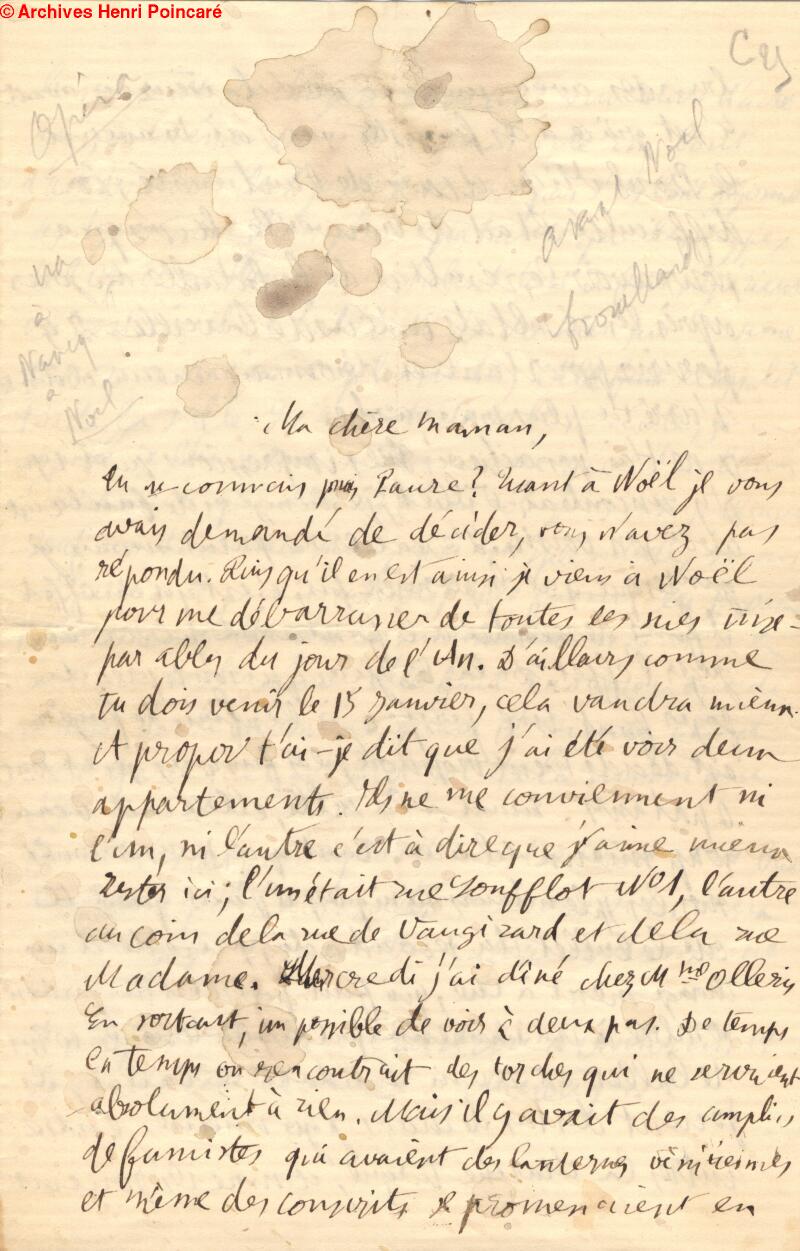 © Archives Henri Poincaré
Cy
Opéra
avant Noël
brouillard
va
à
Nancy
à
Noël
Ma chère maman,
tu ne connais pas Laure? Quant à Noël je vous
avais demandé de décider, vous n'avez pas
répondu. Puisqu'il en est ainsi je viens à Noël
pour me débarrasser de toutes les scies insé-
parables du jour de l'An. D'ailleurs comme
tu dois venir le 15 Janvier, cela vaudra mieux.
A propos t'ai-je dit que j'ai été voir deux
appartements. Ils ne me conviennent ni
l'un, ni l'autre c'est à dire que j'aime mieux
rester ici; l'un était rue Soufflot No 1, l'autre
au coin de la rue de Vaugirard et de la rue
Madame. Mercredi j'ai dîné chez Mme Olleris
En sortant, impossible de voir à deux pas. De temps
en temps on rencontrait des torches qui ne servaient
absolument à rien. Mais il y avait des
de fumistes qui avaient des lanternes vénitiennes
et même des conscrits se promenaient en